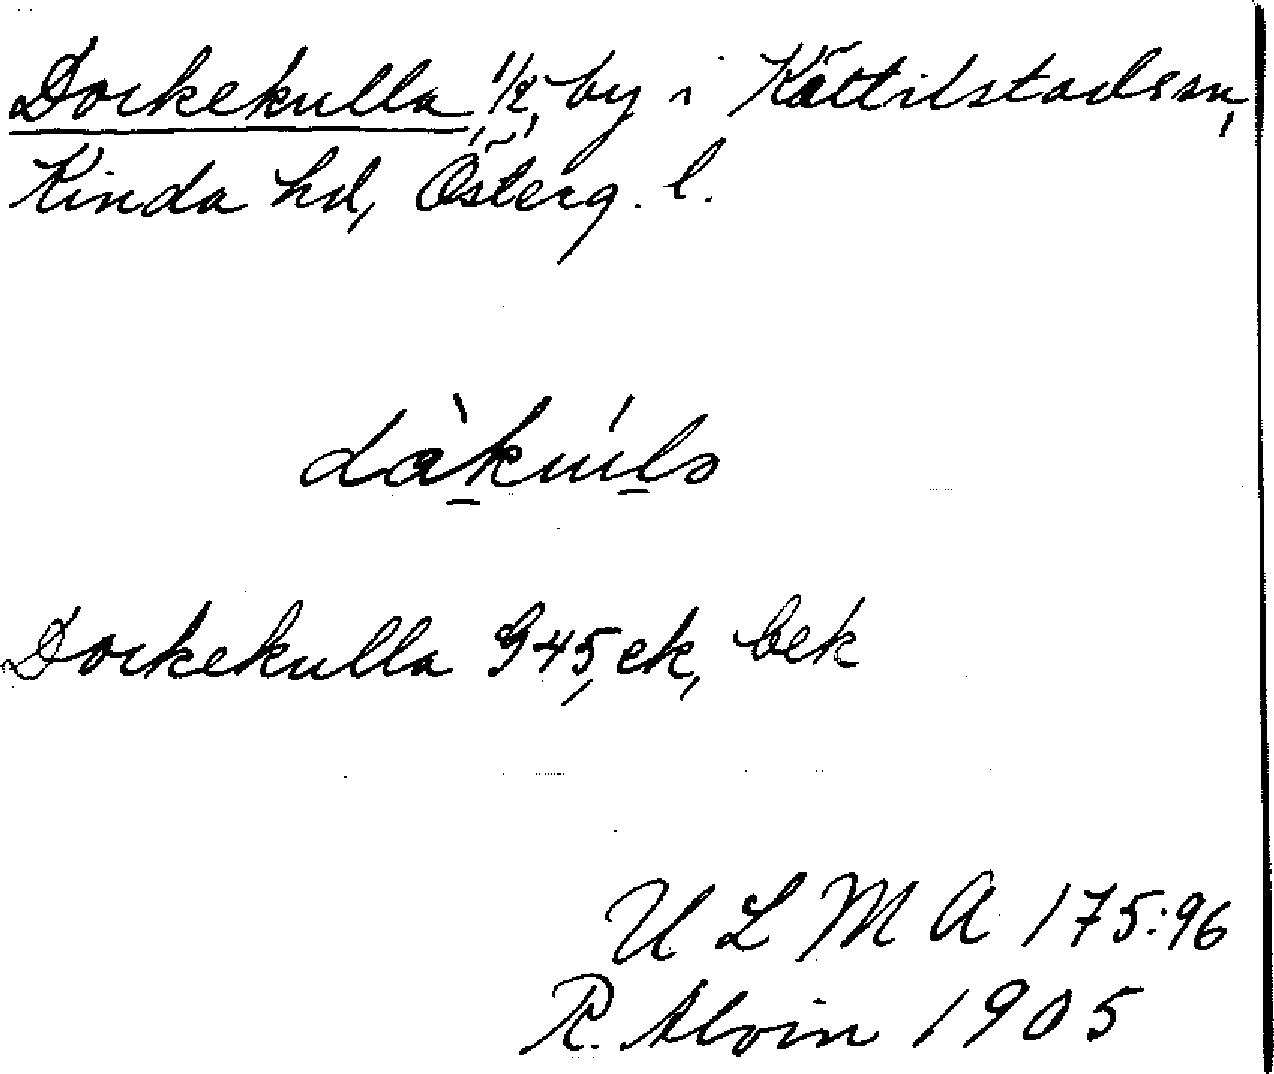 Dockekulla, 1/2, by i Kättilstadssn,
Kinda hd, Österg. l.
dàkúls
Dockekulla G45, ek, bek
U L M A 175:96
R. Alvin 1905